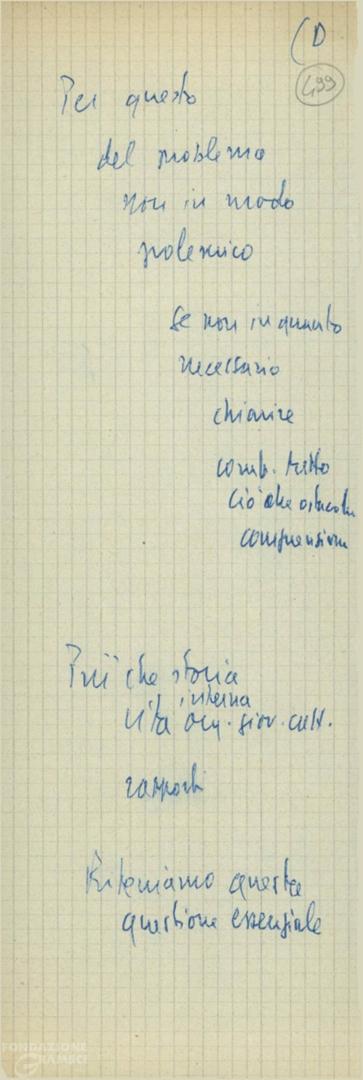 (D
499
Per questo
del problema
non in modo
polemico
se non in quanto
necessario
chiarire
comb. tutto
ciò che ostacola
comprensione
Più che storia
interna
vita org. giov. catt.
rapporti
Riteniamo questa
questione essenziale
FONDAZIONE
GRAMSCI